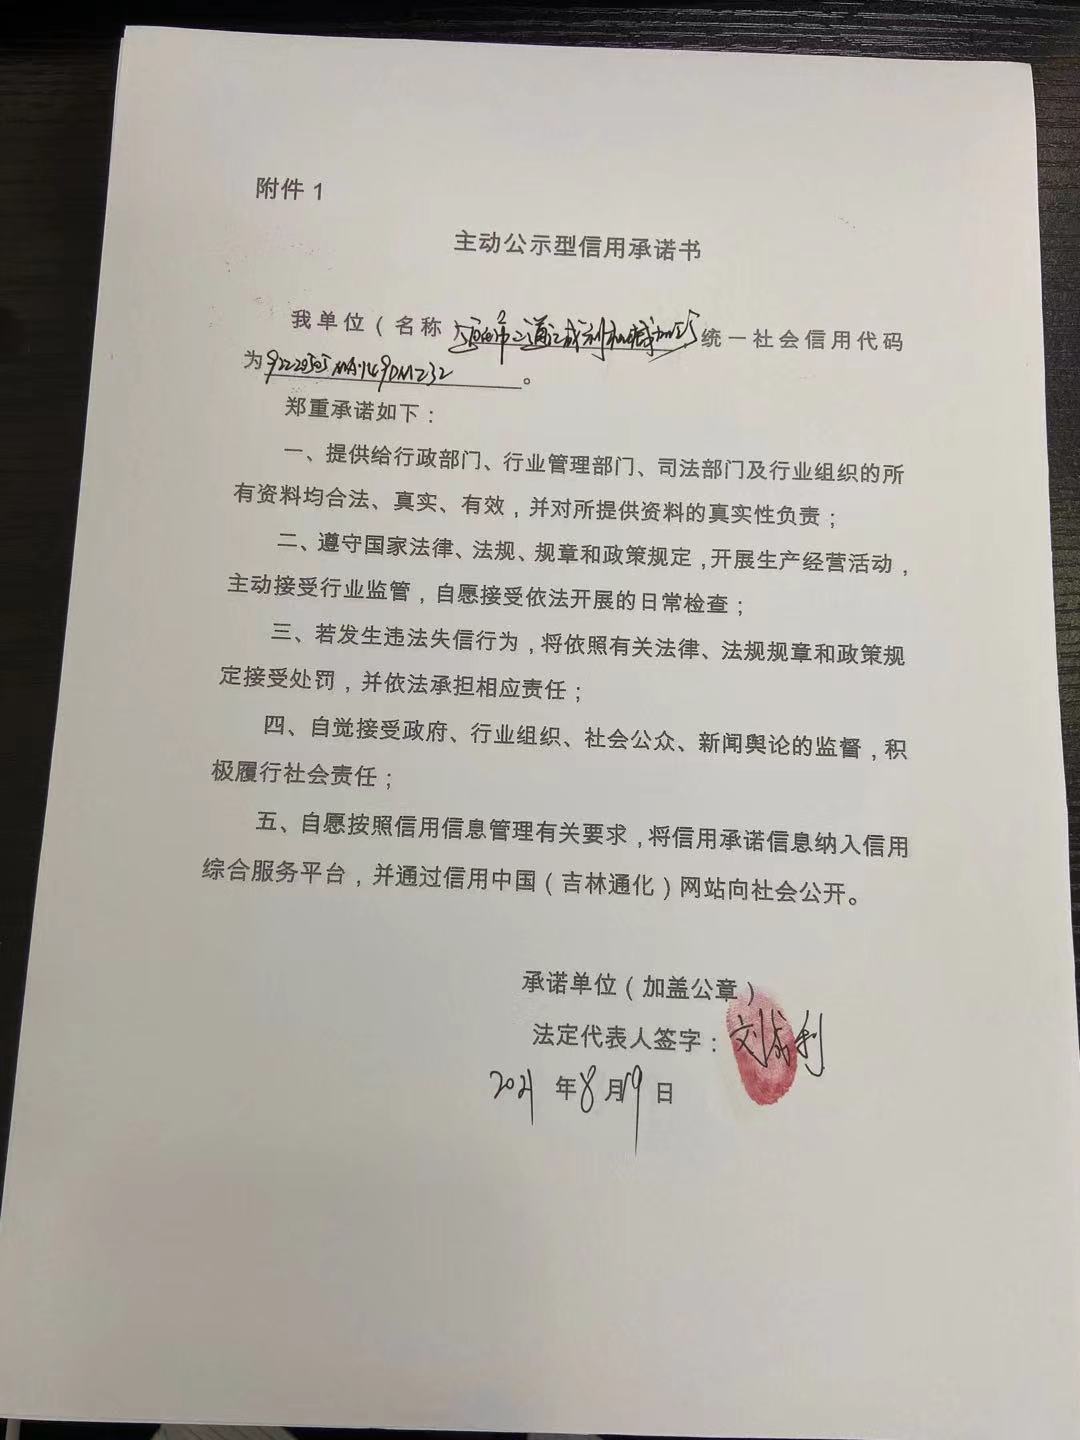 附件 1
主动公示型信用承诺书
我单位（名称 统一社会信用代码
为 。
郑重承诺如下：
一、提供给行政部门、行业管理部门、司法部门及行业组织的所
有资料均合法、真实、有效，并对所提供资料的真实性负责；
二、遵守国家法律、法规、规章和政策规定，开展生产经营活动，
主动接受行业监管，自愿接受依法开展的日常检查；
三、若发生违法失信行为，将依照有关法律、法规规章和政策规
定接受处罚，并依法承担相应责任；
四、自觉接受政府、行业组织、社会公众、新闻舆论的监督，积
极履行社会责任；
五、自愿按照信用信息管理有关要求，将信用承诺信息纳入信用
综合服务平台，并通过信用中国（吉林通化）网站向社会公开。
承诺单位（加盖公章）
法定代表人签字：刘成利
2021 年 8 月 19 日